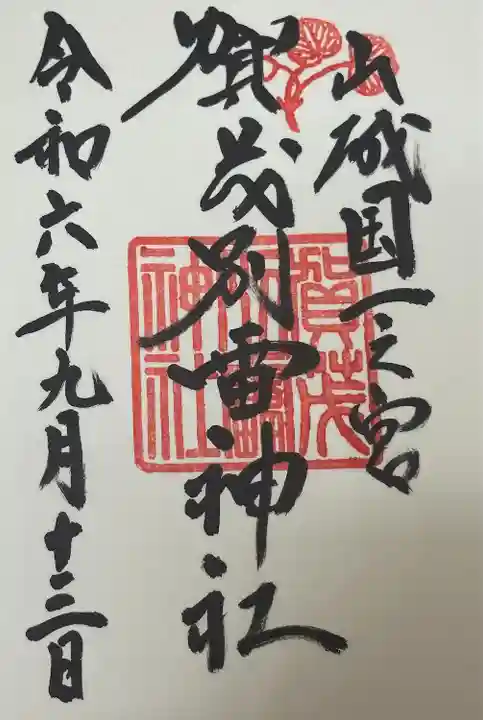 山城国一之宮
賀茂別雷神社
令和六年九月十三日
賀茂
別雷
神社